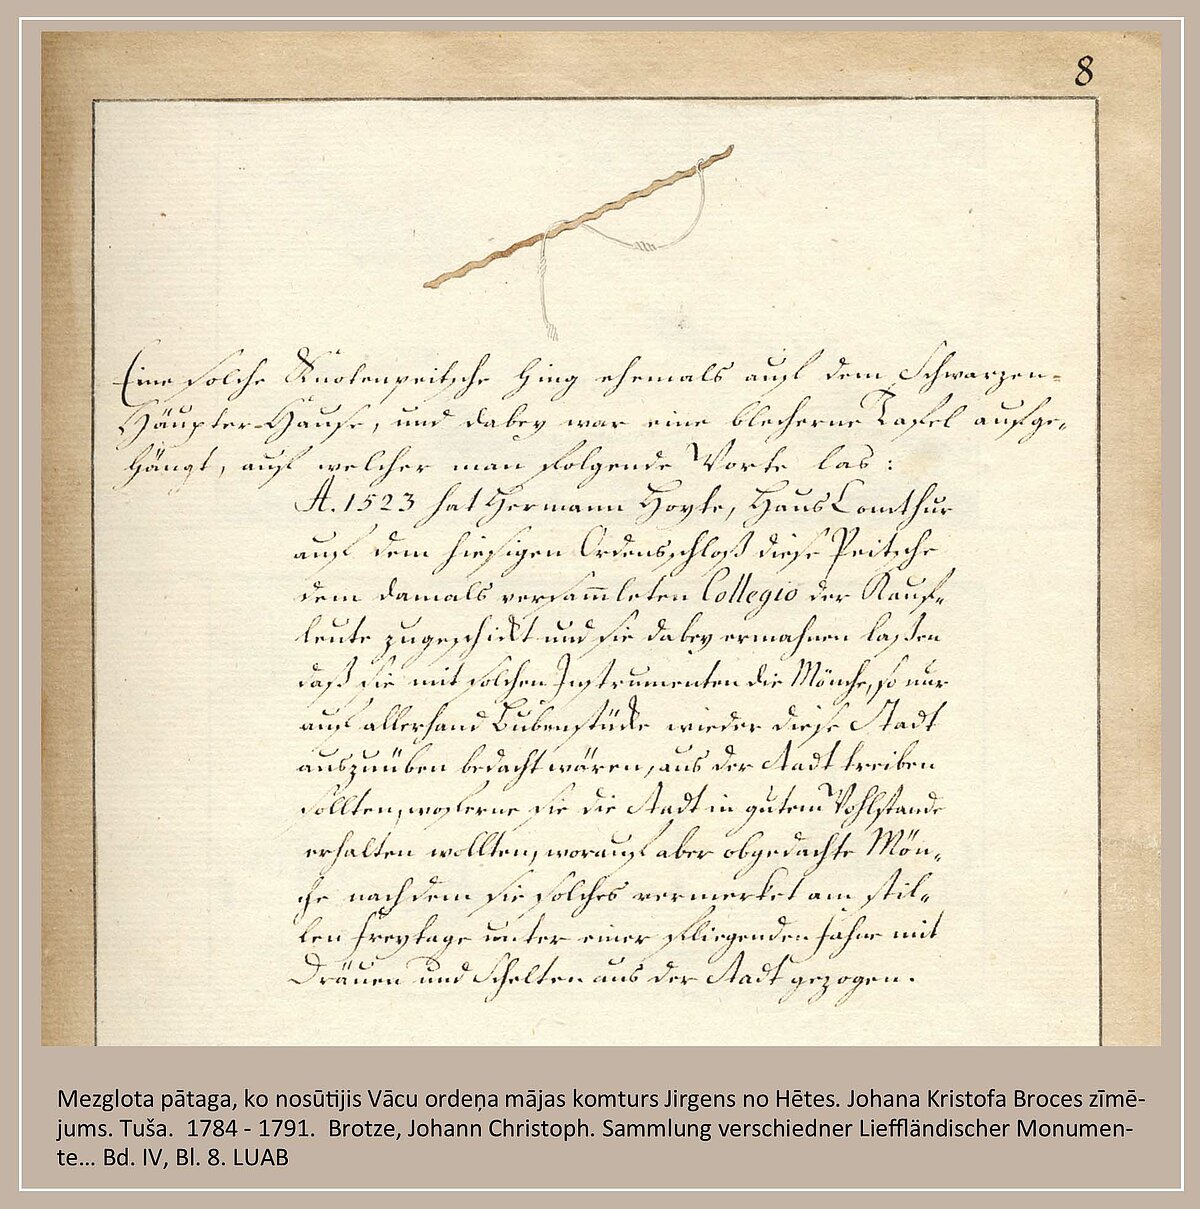 8
Eine solche Knotenpeitsche hing ehemals auf dem Schwarzen-
Häupter-Hause, und dabey war eine blecherne Tafel aufge-
hängt, auf welcher man folgende Worte las:
A. 1523 hat Hermann Hoyte, HausComthur
auf dem hiesigen Ordensschloß diese Peitsche
dem damals versam̅leten Collegio der Kauf-
leute zugeschickt und sie dabey ermahnen laßen
daß sie mit solchen Instrumenten die Mönche, so nur
auf allerhand Bubenstücke wieder diese Stadt
auszuüben bedacht wären, aus der Stadt treiben
sollten, woferne sie die Stadt in gutem Wohlstande
erhalten wollten, worauf aber obgedachte Mön-
che nachdem sie solches vermerket am stil-
len Freytage unter einer fliegenden Fahne mit
Dräuen und Schelten aus der Stadt gezogen.
Mezglota pātaga, ko nosūtijis Vācu ordeņa mājas komturs Jirgens no Hētes. Johana Kristofa Broces zīmē-
jums. Tuša. 1784 - 1791. Brotze, Johann Christoph. Sammlung verschiedner Lieffländischer Monumen-
te... Bd. IV, Bl. 8. LUAB